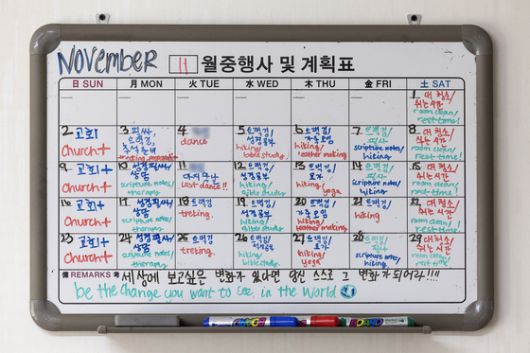 NOVEMBER 11 월중행사 및 계획표
日 SUN 月 MON 火 TUE 水 WED 木 THU 金 FRI 土 SAT
1 대청소/
쉬는시간
room clean/
rest time!
2 교회
Church+
3 필사/
4
dance
5
성경공부
hiking/
bible study
6
hiking/
leather making
7
필사
scripture notes/
hiking
8 대청소/
쉬는시간
room clean/
rest time!
9 교회+
Church+
10 성경필사/
상담
scripture notes/
therapy
11
마지막
last dance!!
12
성경공부
hiking/
bible study
13
요가
hiking/
yoga
14
필사
scripture notes/
hiking
15 대청소/
쉬는시간
room clean/
rest time!
16 교회+
Church+
17 성경필사/
상담
scripture notes/
therapy
18
treking.
19
성경공부
hiking/
bible study
20
hiking/
leather making
21
hiking
22 대청소/
쉬는시간
room clean/
rest time!
23 교회+
Church+
24 성경필사/
상담
scripture notes/
therapy
25
treking.
26
hiking/
bible study
27
hiking/
yoga
28
scripture note/
hiking.
29 대청소/
쉬는시간
room clean/
rest time!
REMARKS 세상에 보고싶은 변화가 있다면 당신 스스로 그 변화가 되어라!!!!
be the change you want to see in the world